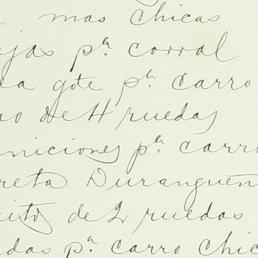 mas chicas
jas pª corral
a gde pª carro
o de 4 ruedas
niciones pª carro
reta Duranguen
ito de 2 ruedas
das pª carro chic